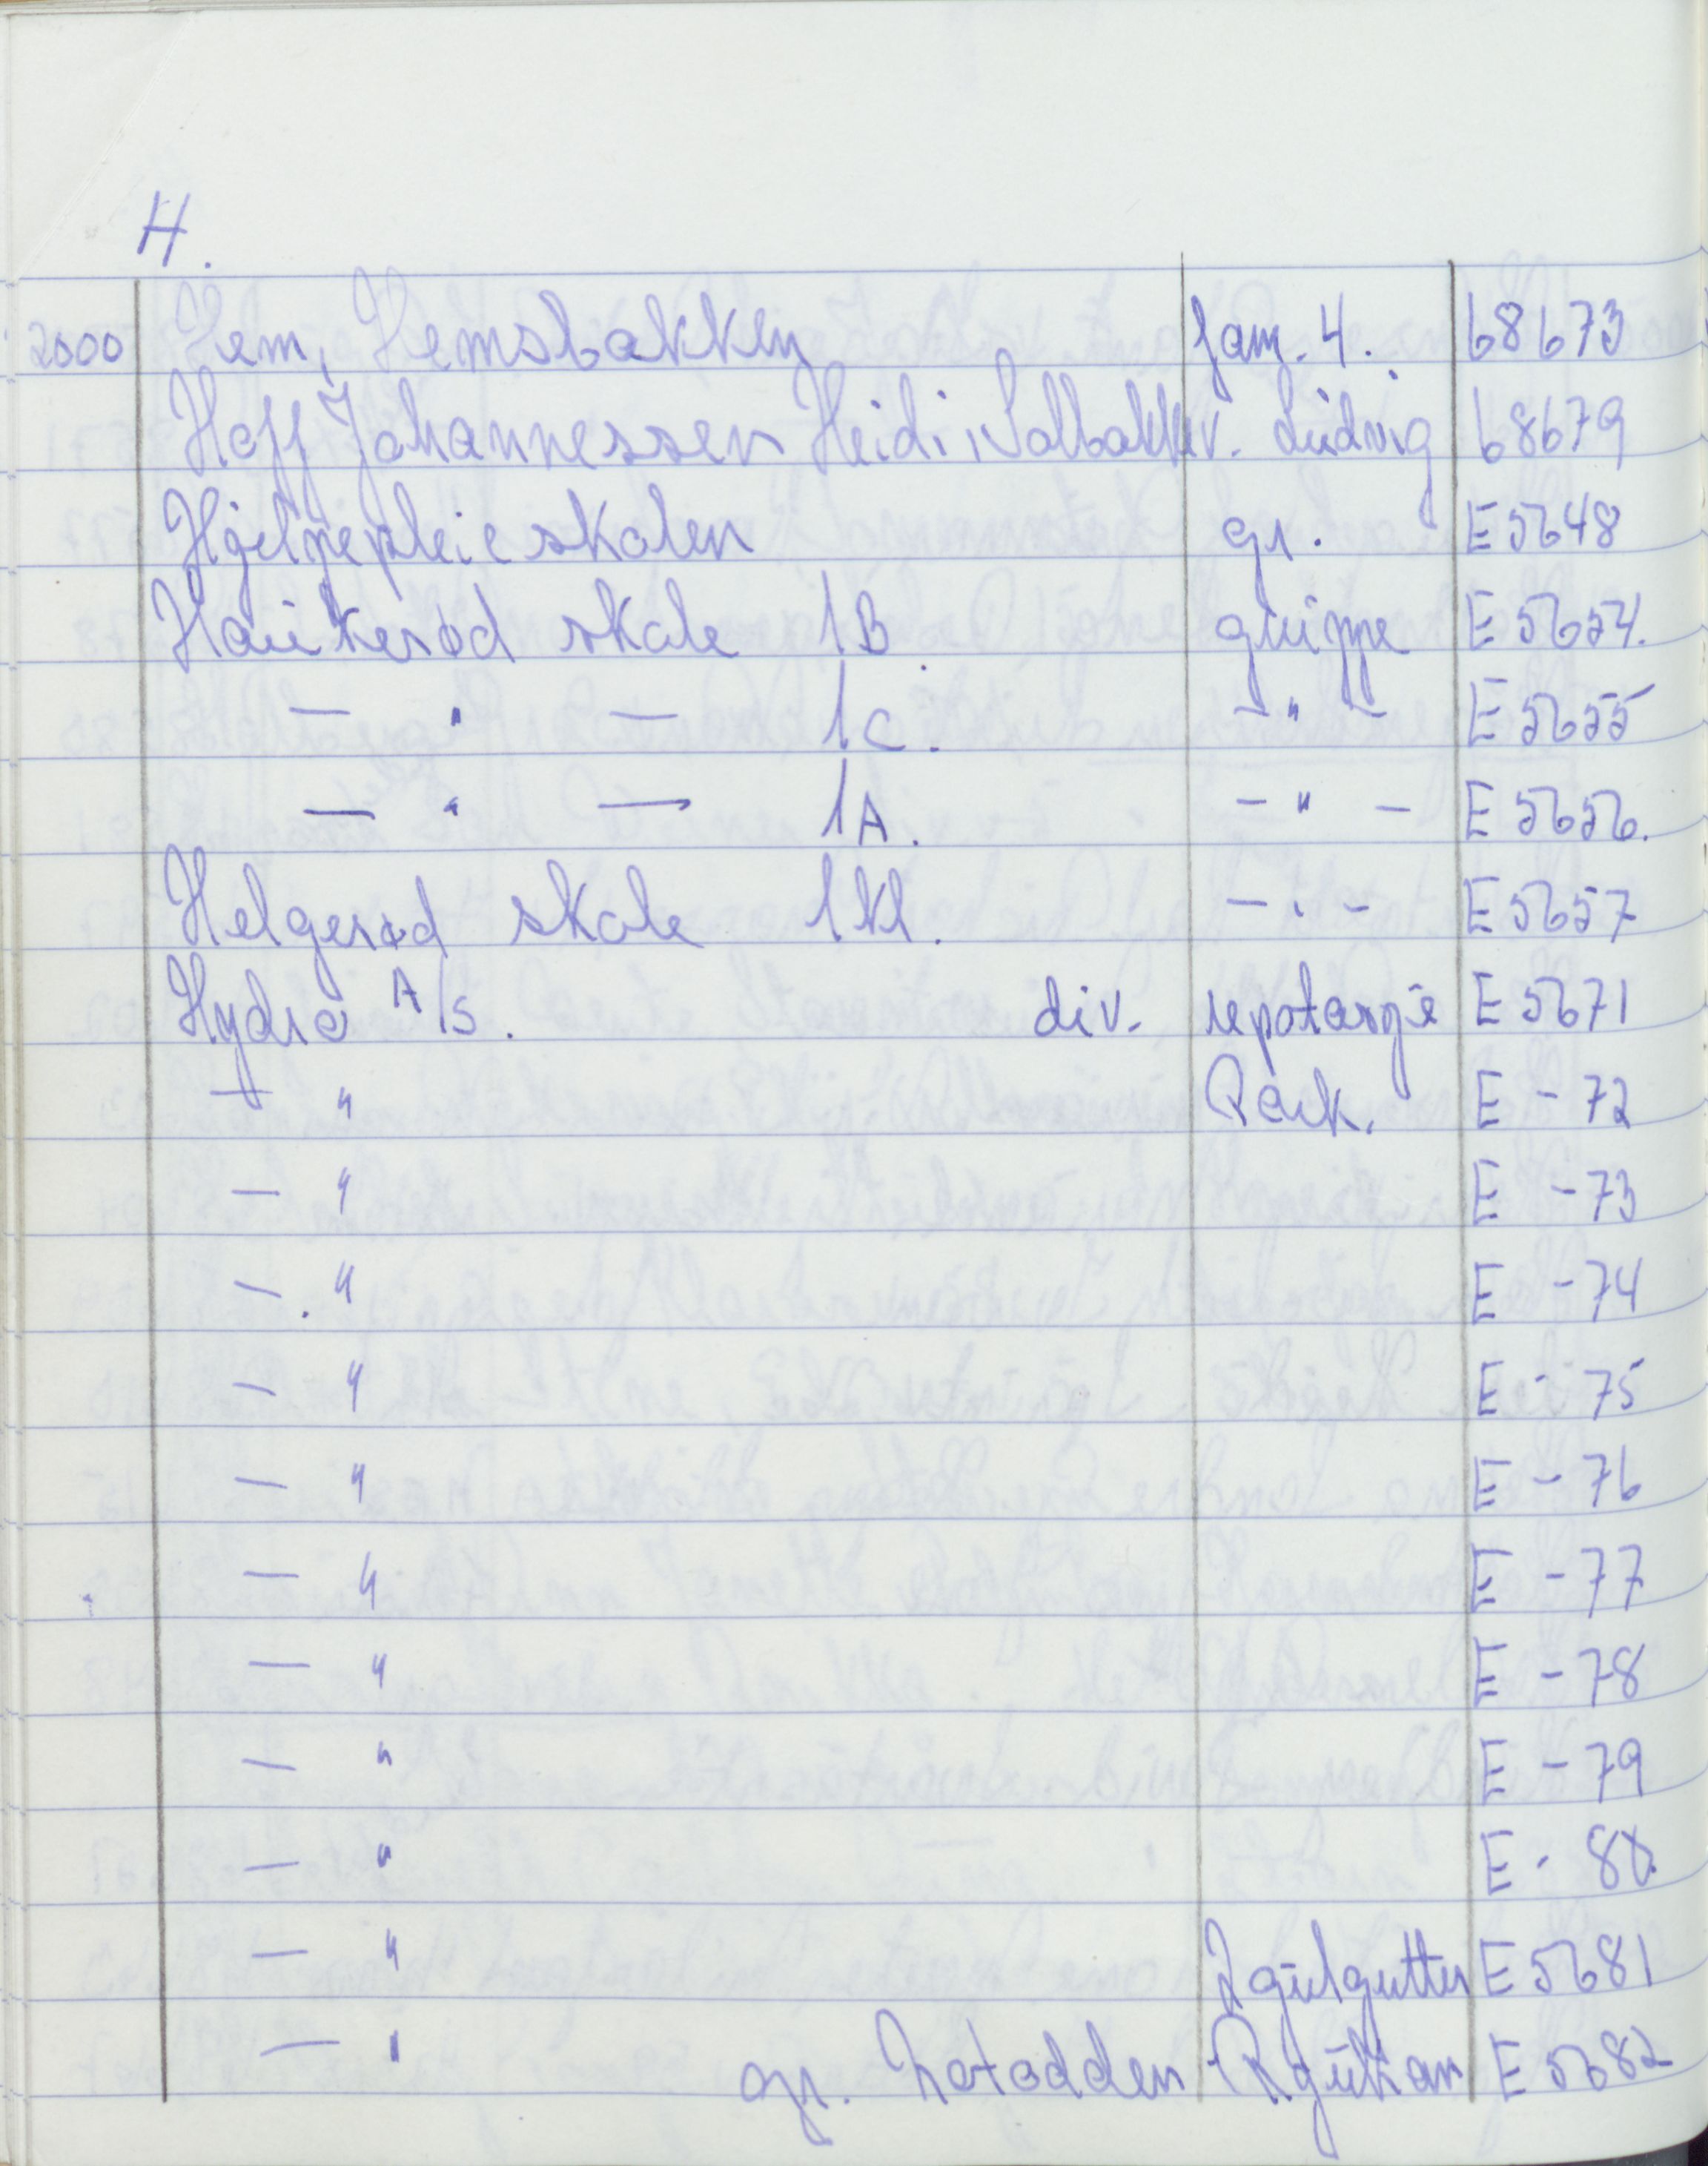 H.
2000 Hem, Hemsbakken fam. 4. 68673
Hoff Johannessen Heidi, Solbakken. Ludvig 68679
Hjelpepleieskolen gr. E5648
Haukerød skole 1B gruppe E5654.
— " — 1C. — " — E5655
— " — 1A. — " — E5656.
Helgerød skole 1kl. — " — E5657
Hydro A/S. div. repotasje E5671
— " Park. E - 72
— " E - 73
— " E - 74
— " E - 75
— " E - 76
— " E - 77
— " E - 78
— " E - 79
— " E - 80.
— " 2 gutter E5681
— " gr. Notodden Rjukan E5682